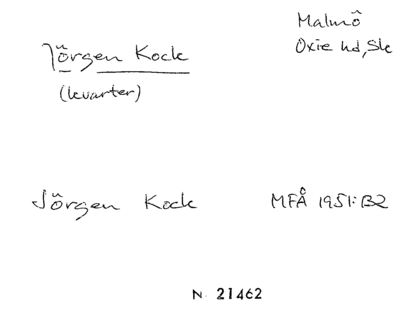 Jörgen Kock
(kvarter)
Malmö
Oxie hd, Sk
Jörgen Kock
MFÅ 1951:132
N. 21462